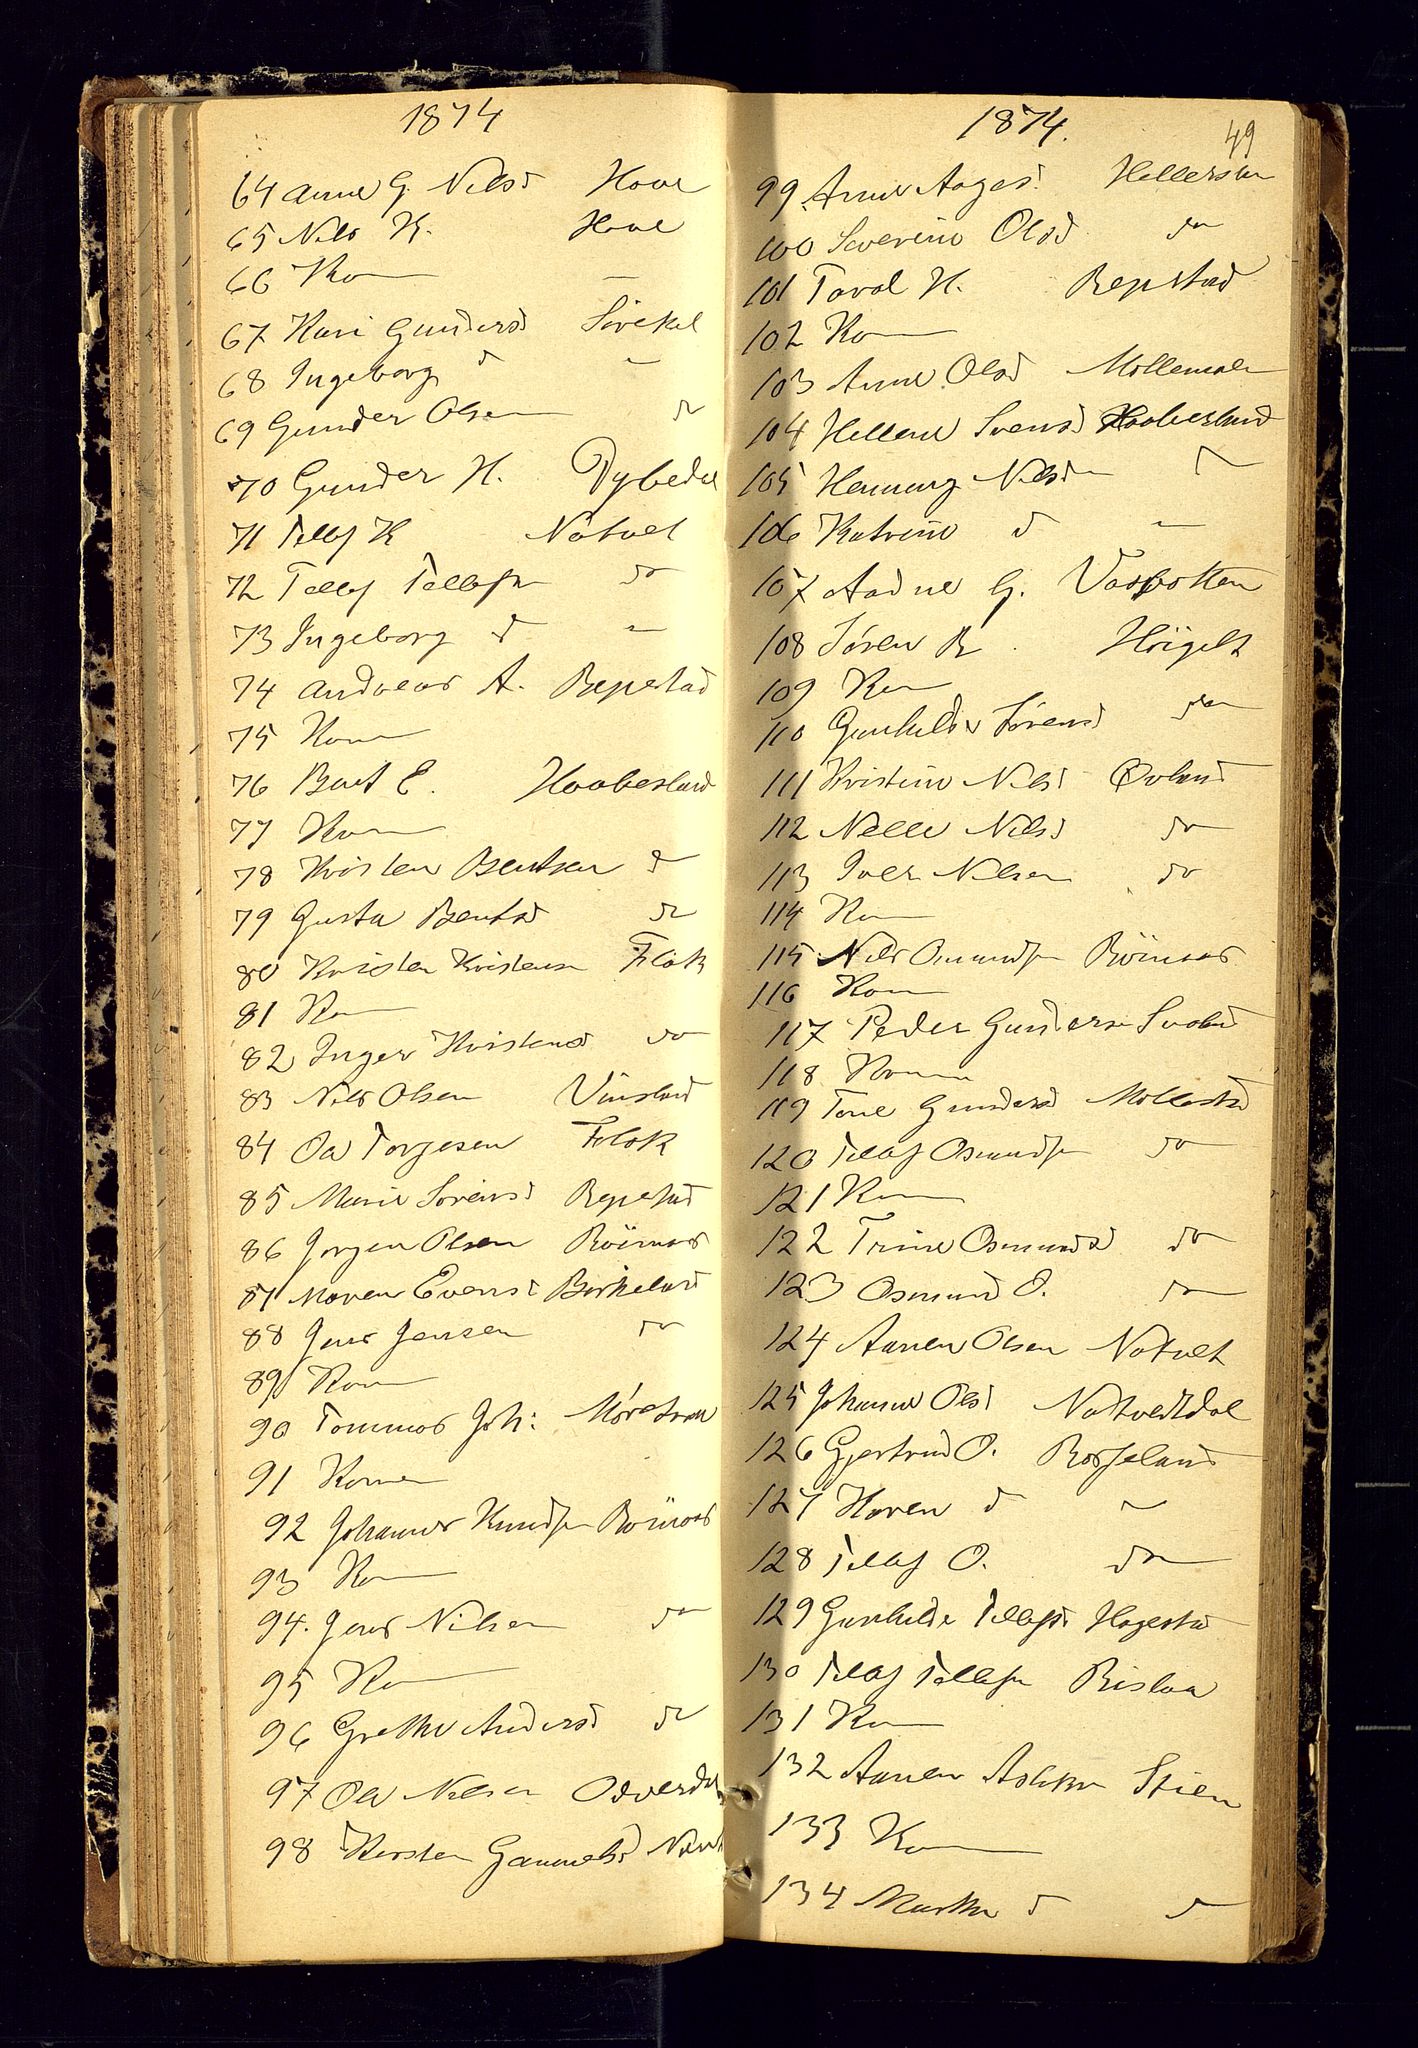 1874
64 Anne G. Nilsd Hove
65 Nils K. Hove
66 Kone —
67 Kari Gundersd Sirekil
68 Ingeborg d —
69 Gunder Olsen do
70 Gunder H. Dybedal
71 Tellef K Natvet
72 Tellef Tellefsen do
73 Ingeborg d —
74 Andreas A. Repestad
75 Kone
76 Bent E. Haabesland
77 Kone
78 Kristen Bentsen do
79 Gusta Bentsd do
80 Kristen Kristensen Flak
81 Kone
82 Inger Kristensd do
83 Nils Olsen Vinsland
84 Ola Torgesen Flak
85 Marie Sørensd Repestad
86 Jørgen Olsen Röinaas
87 Maren Evensd Birkeland
88 Jens Jensen do
89 Kone
90 Tommas Joh:
91 Kone
92 Johannes Knudsen Röinaas
93 Kone
94. Jens Nilsen do
95 Kone
96 Grethe Andersd do
97 Ole Nilsen Odderdal
98 Kirsten Gammelsd
1874.
49
99 Anne Aagesd. Hellersøen
100 Severine Olsd do
101 Taral H. Repstad
102 Kone
103 Anne Olsd Mollemoen
104 Hellene Svensd Haabesland
105 Henning Nilsen do
106 Katrine d —
107 Aadne G. Vasbotten
108 Søren B. Höigilt
109 Kone
110 Gunhilde Sørensd do
111 Kristine Nilsd Øvland
112 Nelle Nilsd do
113 Iver Nilsen do
114 Kone
115 Nils Osmundsen Röinaas
116 Kone
117 Peder Gundersen Svaland
118 Kone
119 Tone Gundersd Mollestad
120 Tellef Osmundsen do
121 Kone
122 Trine Osmundsd do
123 Osmund O. do
124 Aanen Olsen Natvet
125 Johanne Olsd Natvedtdal
126 Gjertrud O. Rosseland
127 Karen d —
128 Tellef O. do
129 Gunhilde Tellefsd Hagestad
130 Tellef Tellefsen Rislaa
131 Kone
132 Aanen Aslaksen Stien
133 Kone
134 Marthe d do